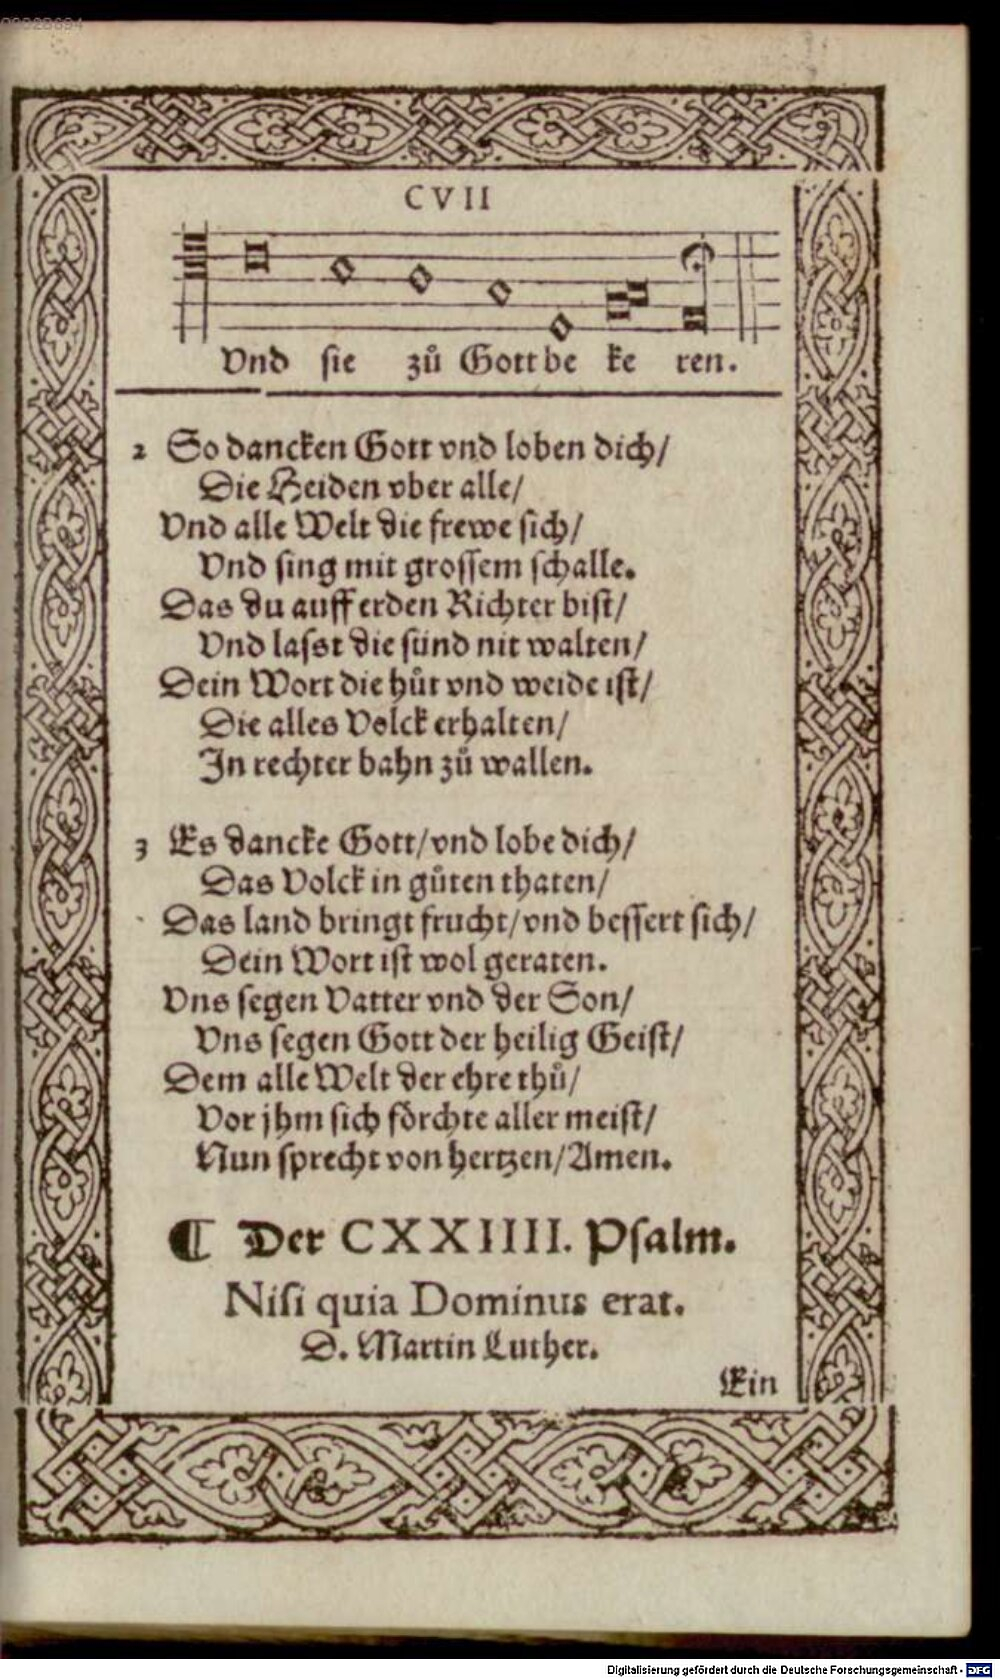 00028694
CVII
Vnd sie zů Gott be ke ren.
2 So dancken Gott vnd loben dich/
Die Heiden vber alle/
Vnd alle Welt die frewe sich/
Vnd sing mit grossem schalle.
Das du auff erden Richter bist/
Vnd lasst die sünd nit walten/
Dein Wort die hůt vnd weide ist/
Die alles Volck erhalten/
In rechter bahn zů wallen.
3 Es dancke Gott/vnd lobe dich/
Das Volck in gůten thaten/
Das land bringt frucht/vnd bessert sich/
Dein Wort ist wol geraten.
Vns segen Vatter vnd der Son/
Vns segen Gott der heilig Geist/
Dem alle Welt der ehre thů/
Vor jhm sich förchte aller meist/
Nun sprecht von hertzen/Amen.
¶ Der CXXIIII. Psalm.
Nisi quia Dominus erat.
D. Martin Luther.
Ein
Digitalisierung gefördert durch die Deutsche Forschungsgemeinschaft - DFG